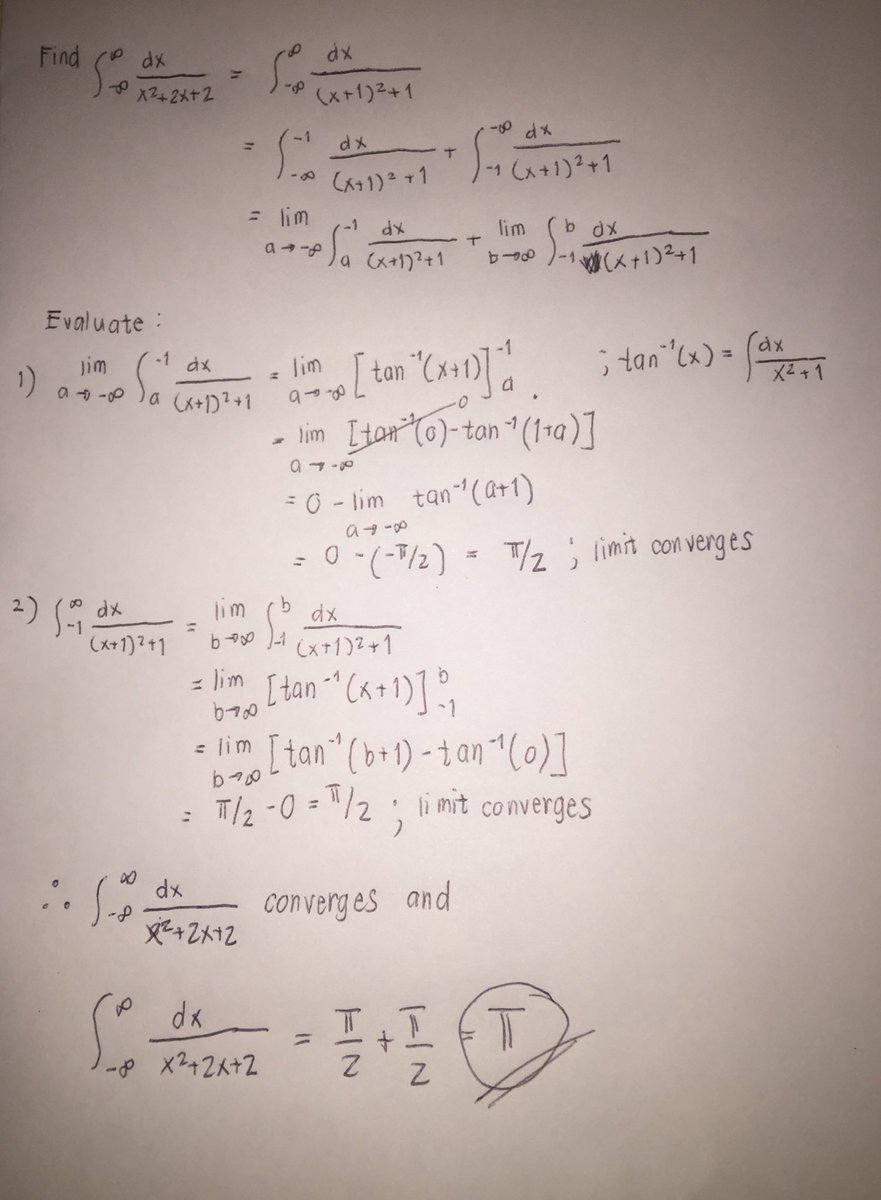 Find ∫_{-∞}^{∞} dx/(x²+2x+2) = ∫_{-∞}^{∞} dx/((x+1)²+1)
= ∫_{-∞}^{-1} dx/((x+1)²+1) + ∫_{-1}^{-∞} dx/((x+1)²+1)
= lim_{a→-∞} ∫_{a}^{-1} dx/((x+1)²+1) + lim_{b→∞} ∫_{-1}^{b} dx/((x+1)²+1)
Evaluate :
1) lim_{a→-∞} ∫_{a}^{-1} dx/((x+1)²+1) = lim_{a→-∞} [tan⁻¹(x+1)]_{a}^{-1} . ; tan⁻¹(x) = ∫ dx/(x²+1)
= lim_{a→-∞} [tan⁻¹(0)→0 - tan⁻¹(1+a)]
= 0 - lim_{a→-∞} tan⁻¹(a+1)
= 0 - (-π/2) = π/2 ; limit converges
2) ∫_{-1}^{∞} dx/((x+1)²+1) = lim_{b→∞} ∫_{-1}^{b} dx/((x+1)²+1)
= lim_{b→∞} [tan⁻¹(x+1)]_{-1}^{b}
= lim_{b→∞} [tan⁻¹(b+1) - tan⁻¹(0)]
= π/2 - 0 = π/2 ; limit converges
∴ ∫_{-∞}^{∞} dx/(x²+2x+2) converges and
∫_{-∞}^{∞} dx/(x²+2x+2) = π/2 + π/2 = π